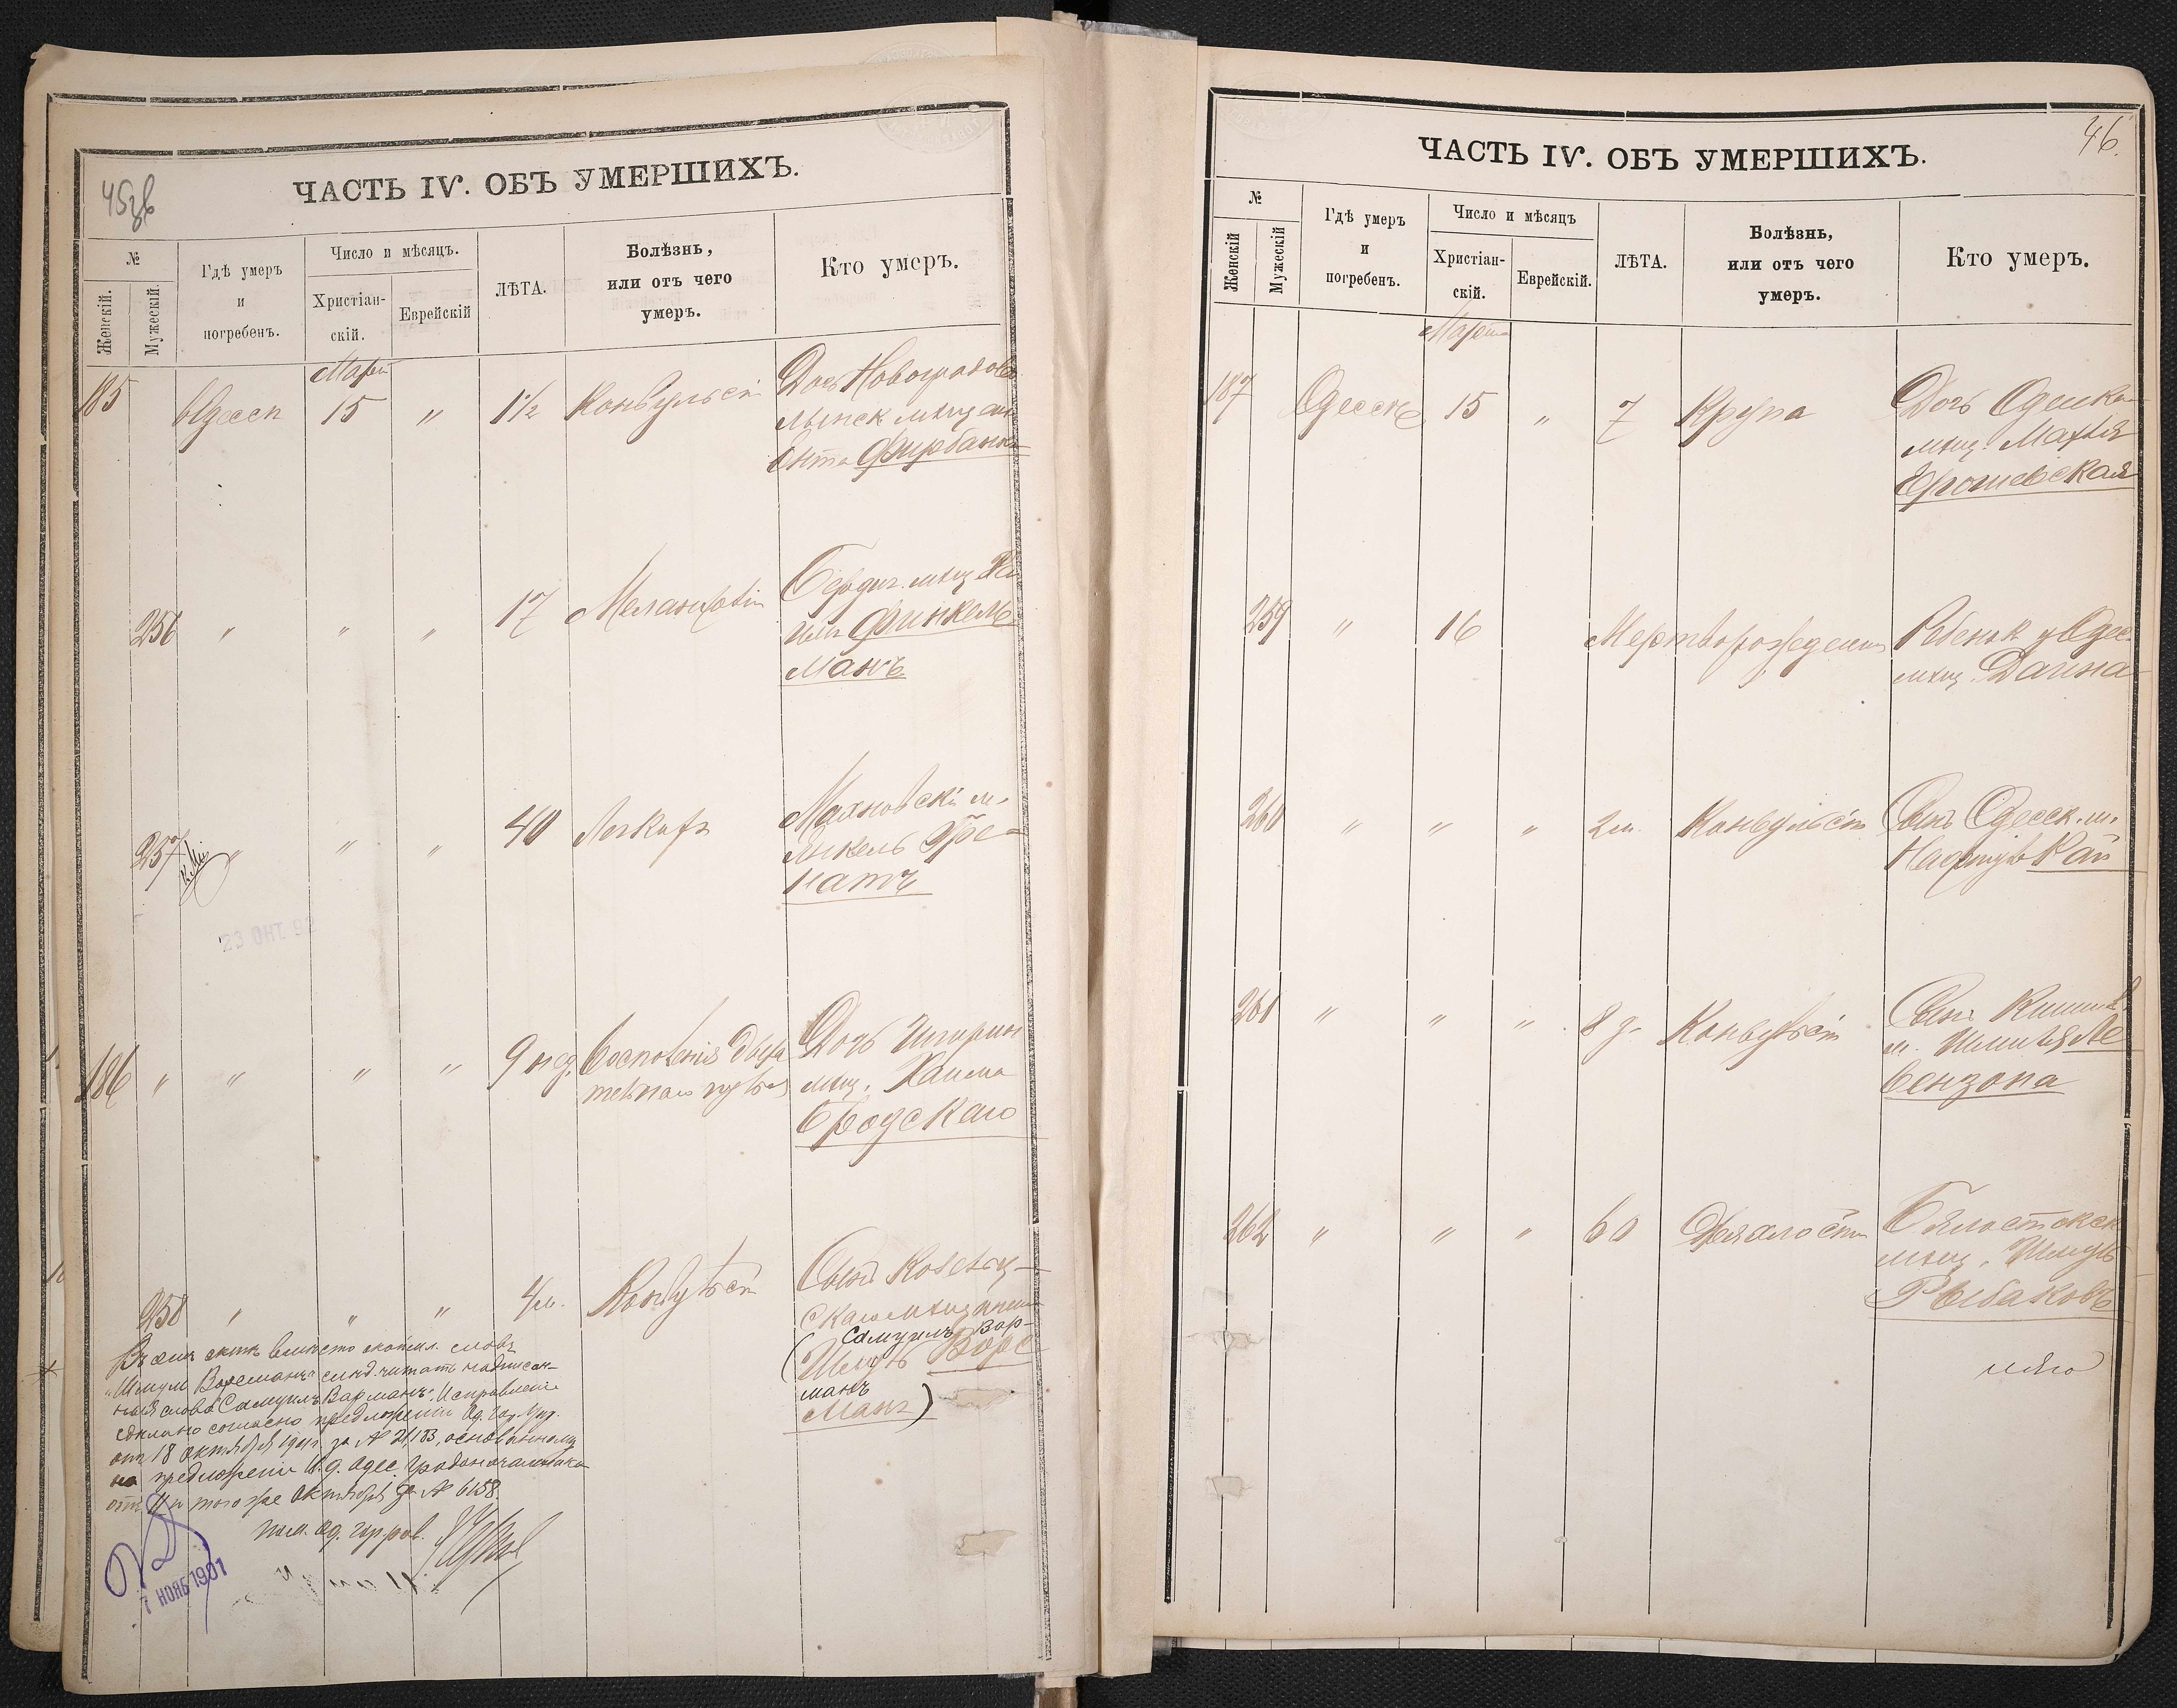 45 об
ЧАСТЬ IV. ОБЪ УМЕРШИХЪ.
№
Женскій.
Мужескій.
Гдѣ умеръ
и
погребенъ.
Число и мѣсяцъ.
Христіан-
скій.
Еврейскій
ЛѢТА.
Болѣзнь,
или отъ чего
умеръ.
Кто умеръ.
Март
185
Одесси
15
"
1½
Конвульсіи
Дочь Новоградово
лынск мѣщан
Фирбанк
256
"
"
"
17
Меланхоліи
Бердич. мѣщ
Финкель
манъ
257
"
"
"
40
Махновскій м.
Янкель Гра
натъ
23 ОКТ. 9
186
"
"
"
"
9 нед.
Воспаленія дыха
тельнаго путей
Дочь
мѣщ. Хаима
Бродскаго
258
"
"
"
4 м.
Конвульсіи
Сынъ
скаго мѣщанина
Самуилъ Вар-
(Шмуль Ворс
манъ
манъ)
Въ семъ актѣ вмѣсто словъ
„Шмуль Ворсманъ" слѣд. читать надписан-
ныя слова „Самуилъ Варманъ". Исправленіе
сдѣлано согласно предложенію Од. Гор. Упр.
отъ 18 октября 1901 г. за № 21183, основанному
на предложеніи И. д. Одес. Градоначальника
отъ 11 того же октября за № 6158.
7 НОЯБ 1901
46.
ЧАСТЬ IV. ОБЪ УМЕРШИХЪ.
№
Женскій
Мужескій
Гдѣ умеръ
и
погребенъ.
Число и мѣсяцъ
Христіан-
скій.
Еврейскій.
ЛѢТА.
Болѣзнь,
или отъ чего
умеръ.
Кто умеръ.
Марта
187
Одессѣ
15
"
7
Крупа
Дочь Одеска
мѣщ. Махля
259
"
16
Мерторожденный
Ребенок у Одес.
мѣщ. Даина
260
"
"
"
2 м.
Конвульсіи
Сынъ Одесск. м.
Нафтулъ Кац
261
"
"
"
8 д.
Конвульсіи
Сынъ Кишин
м. Шмиля Ле
вензона
262
"
"
"
60
Дряхлости
Бѣлостокск
мѣщ. Шмуль
Рыбаковъ